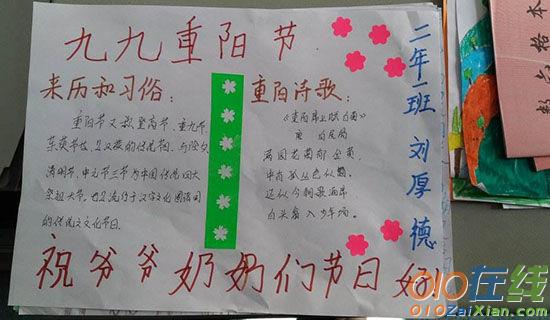 九九重阳节
来历和习俗：
重阳节又称登高节、重九节、
茱萸节，也是汉族的传统节日，与除夕、
清明节、中元节三节为中国传统四大
祭祖大节，也是流行于汉字文化圈诸国
的传统文化节日。
重阳诗歌：
唐
满园花菊郁金黄，
中有孤丛色似霜。
还似今朝歌酒席，
白头翁入少年场。
二年一班 刘厚德
祝爷爷奶奶们节日好
数 格本
010在线
010ZaiXian.com